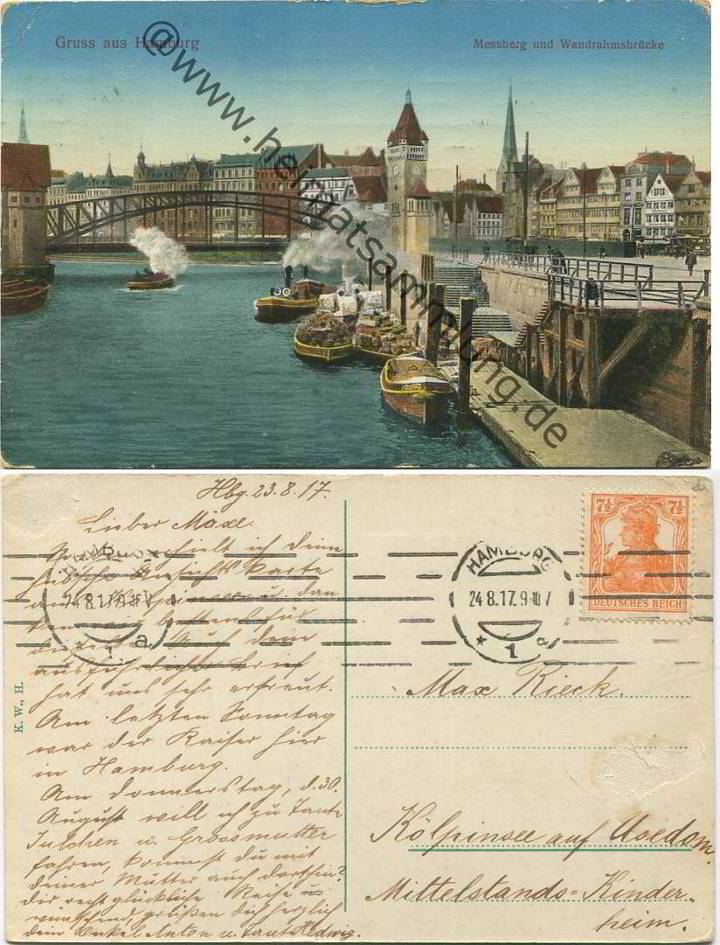 Gruss aus Hamburg
Messberg und Wandrahmsbrücke
@www.heimatsammlung.de
Hbg. 23. 8. 17.
Lieber Maxe.
ich dein
hübsche Ansichtskarte
u. dan
Auch dein
hat uns sehr erfreut.
Am letzten Sonntag
war der Kaiser hier
in Hamburg.
Am Donnerstag, d. 30.
August will ich zu Tante
Julchen u. Grossmutter
fahren, kommst du mit
deiner Mutter auch dorthin?
dir recht glückliche Reise
wünschend, grüßen dich herzlich
dein Onkel Anton u. Tante Hedwig.
K. W., H.
24.8.17.9-10V
a
HAMBURG
24.8.17.9-10V
* 1 a
7½ 7½
DEUTSCHES REICH
Max Rieck.
Kölpinsee auf Usedom.
Mittelstands-Kinder-
heim.